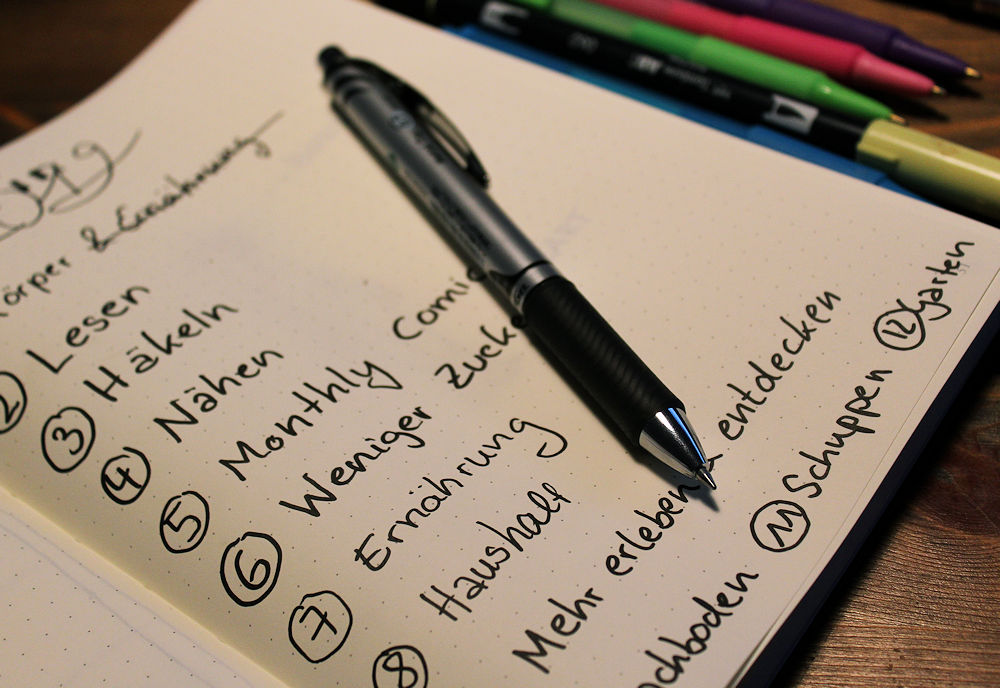 019
örper & Ernährung
2 Lesen
3 Häkeln
4 Nähen
5 Monthly Comi
6 Weniger Zuck
7 Ernährung
8 Haushalt
Mehr erleben & entdecken
chboden 11 Schuppen 12 Garten